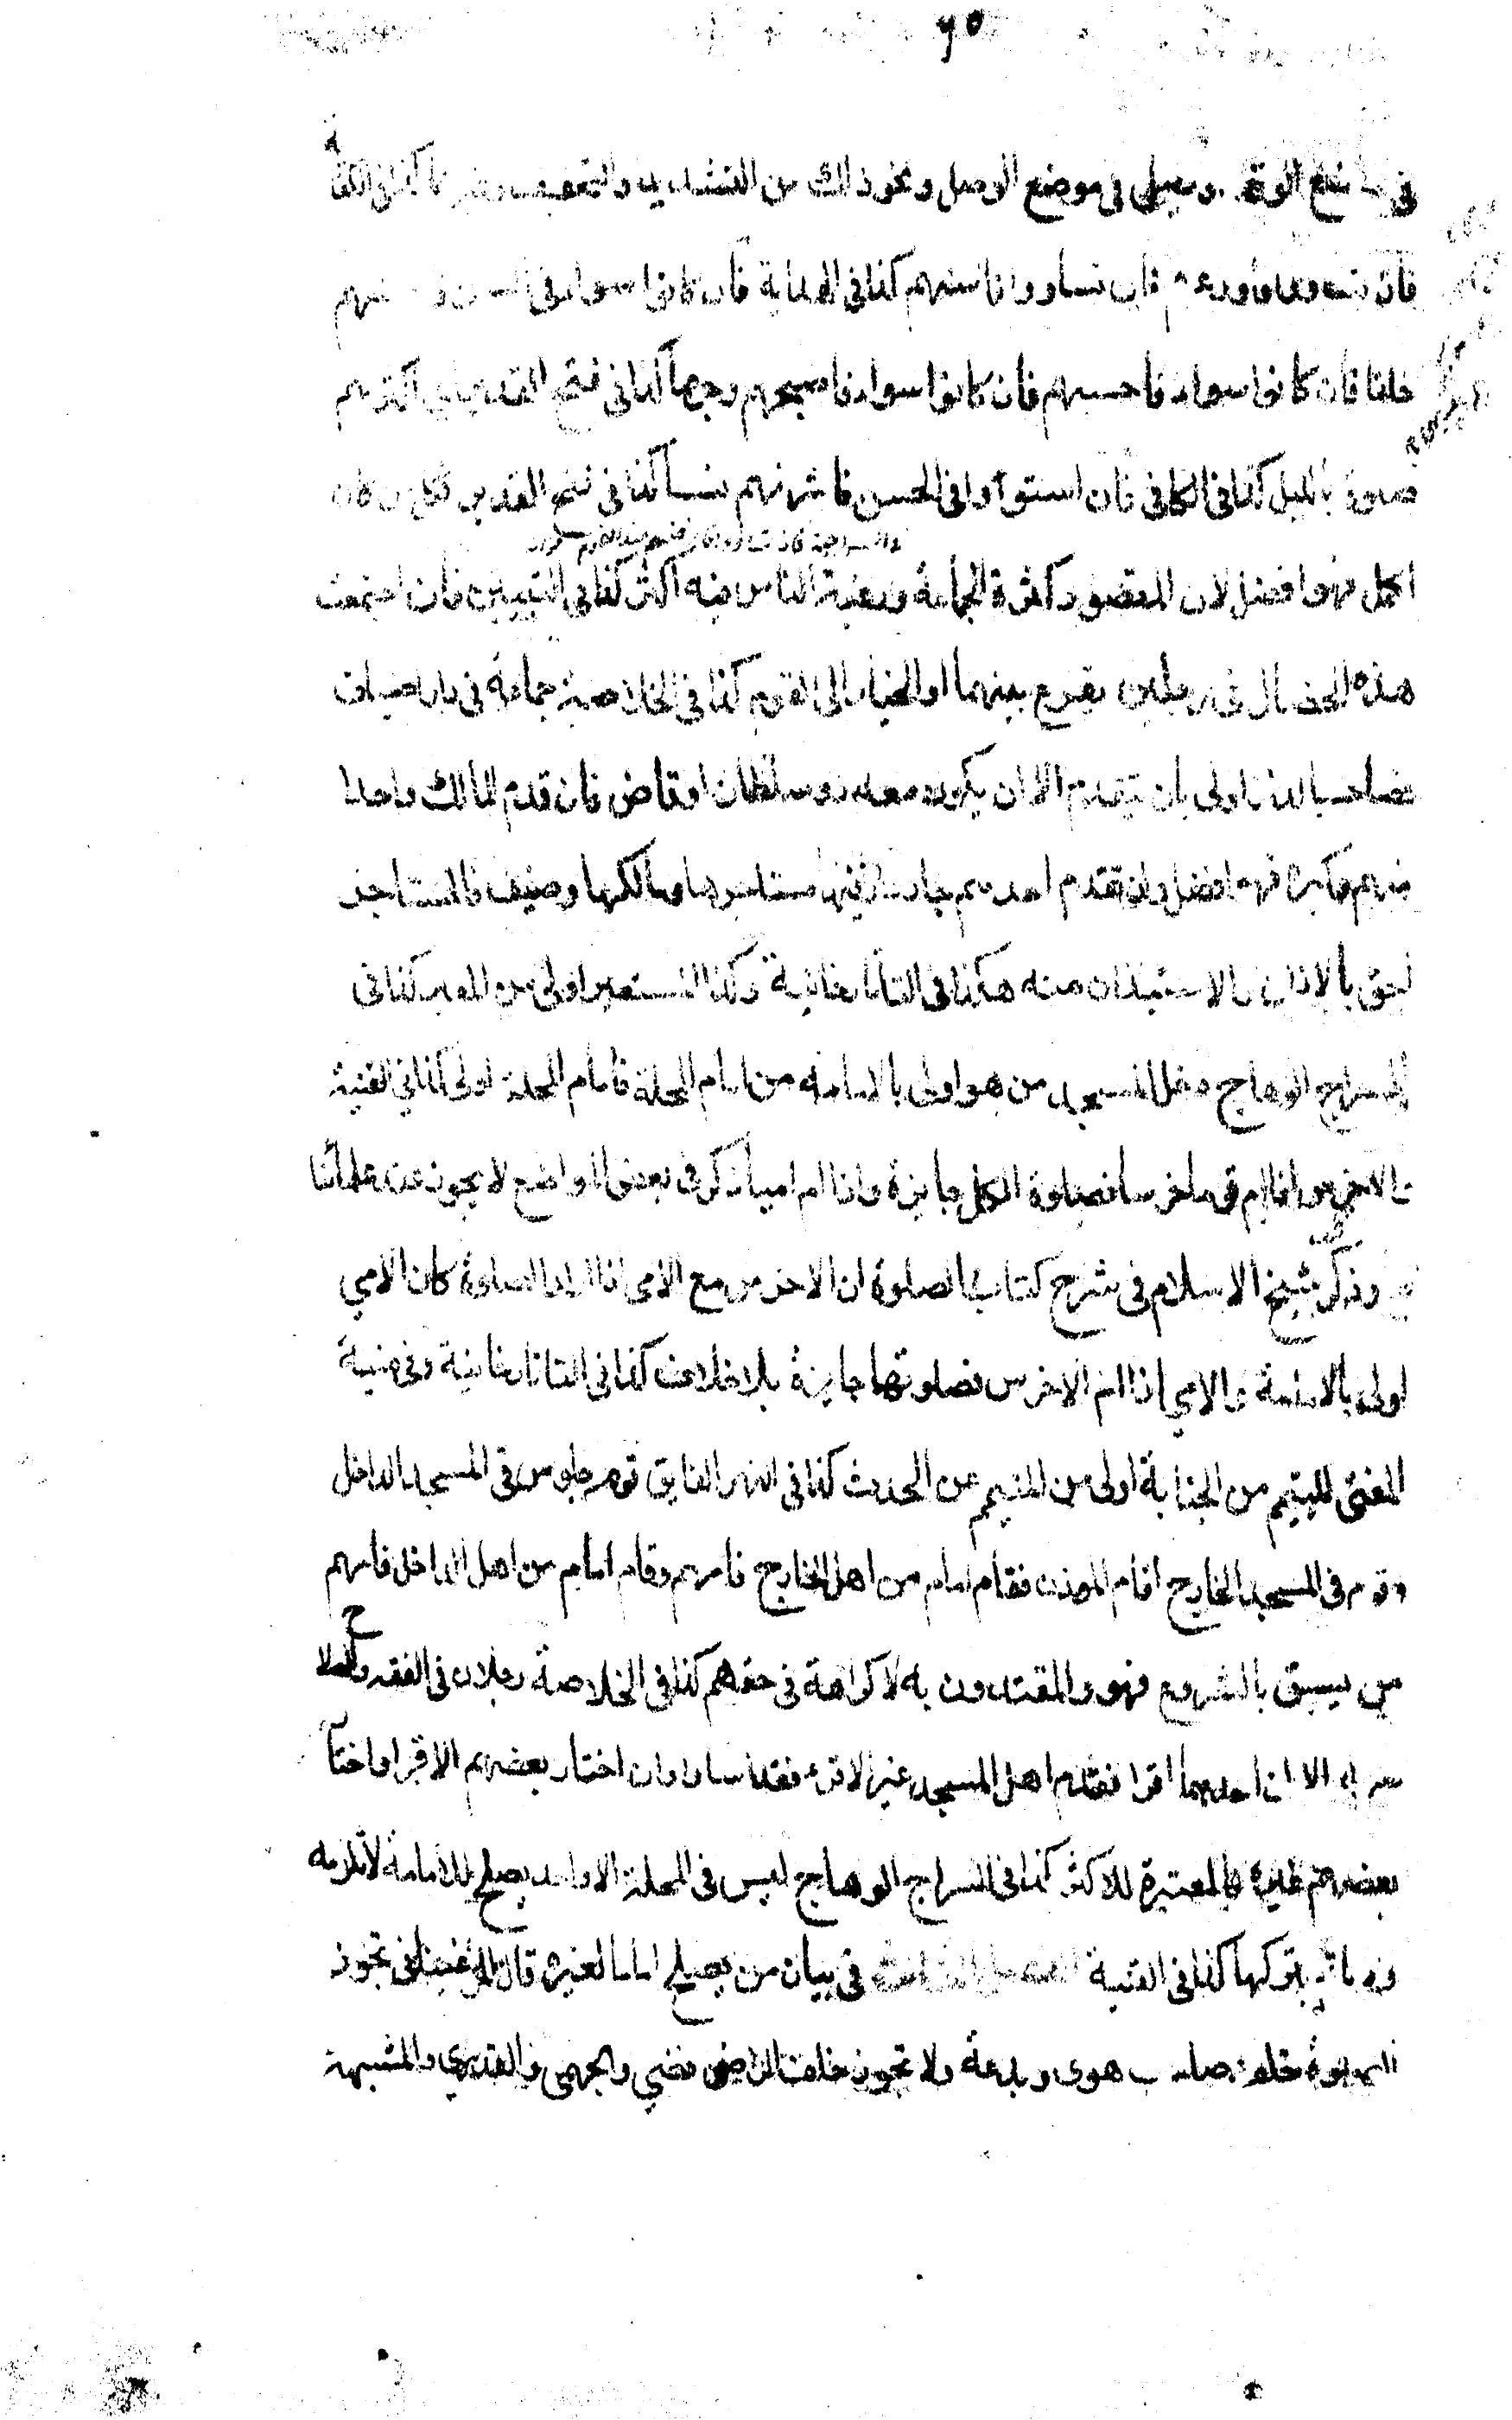 ٩٥
في موضع الوقف ويصل في موضع الوصل ونحو ذلك من التشديد والتخفيف وغيرهما كذا في الكفا
فان تساووا فاورعهم فان تساووا فاسنهم كذا في الهداية فان كانوا سواء في السن فاحسنهم
خلقا فان كانوا سواء فاحسبهم فان كانوا سواء فاصبحهم وجها كذا في فتح القدير اكثرهم
صلوة بالليل كذا في الكافي فان استووا في الحسن فاشرفهم نسبا كذا في فتح القدير فكل من كان
اكمل فهو افضل لان المقصود كثرة الجماعة ورغبة الناس فيه اكثر كذا في التبيين فان اجتمعت
هذه الخصال في رجلين يقرع بينهما او الخيار الى القوم كذا في الخلاصة جماعة في دار اضياف
فصاحب الدار اولى بان يتقدم الا ان يكون معه ذو سلطان او قاض فان قدم المالك واحدا
منهم لكبره فهو افضل وان تقدم احدهم جاز دار فيها مستاجرها ومالكها وضيف فالمستاجر
احق بالاذن والاستيذان منه هكذا في التاتارخانية وكذا المستعير اولى من المعير كذا في
السراج الوهاج دخل المسجد من هو اولى بالامامة من امام المحلة فامام المحلة اولى كذا في القنية
الاخرس اذا ام قوما خرسا فصلوة الكل جايزة واذا ام اميا ذكر في بعض المواضع لا يجوز عند علمائنا
وذكر شيخ الاسلام في شرح كتاب الصلوة ان الاخرس مع الامي اذا ارادا الصلوة كان الامي
اولى بالامامة والامي اذا ام الاخرس فصلوتهما جايزة بلا خلاف كذا في التاتارخانية وفي منية
المفتي المتيمم من الجنابة اولى من المتيمم عن الحدث كذا في النهر الفايق قوم جلوس في المسجد الداخل
وقوم في المسجد الخارج اقام الموذن فقام امام من اهل الخارج فامهم وقام امام من اهل الداخل فامهم
من يسبق بالشروع فهو والمقتدون به لا كراهة في حقهم كذا في الخلاصة رجلان في الفقه والصلا
سواء الا ان احدهما اقرا فقدم اهل المسجد غير الاقرء فقد اساوا وان اختار بعضهم الاقرا واختا
بعضهم غيره فالعبرة للاكثر كذا في السراج الوهاج ليس في المحلة الا واحد يصلح للامامة لا تلزمه
ولا ياثم بتركها كذا في القنية الفصل الثالث في بيان من يصلح اماما لغيره قال المرغيناني تجوز
الصلوة خلف صاحب هوى وبدعة ولا تجوز خلف الرافضي والجهمي والقدري والمشبهة